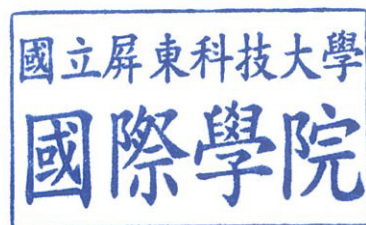 國立屏東科技大學
國際學院